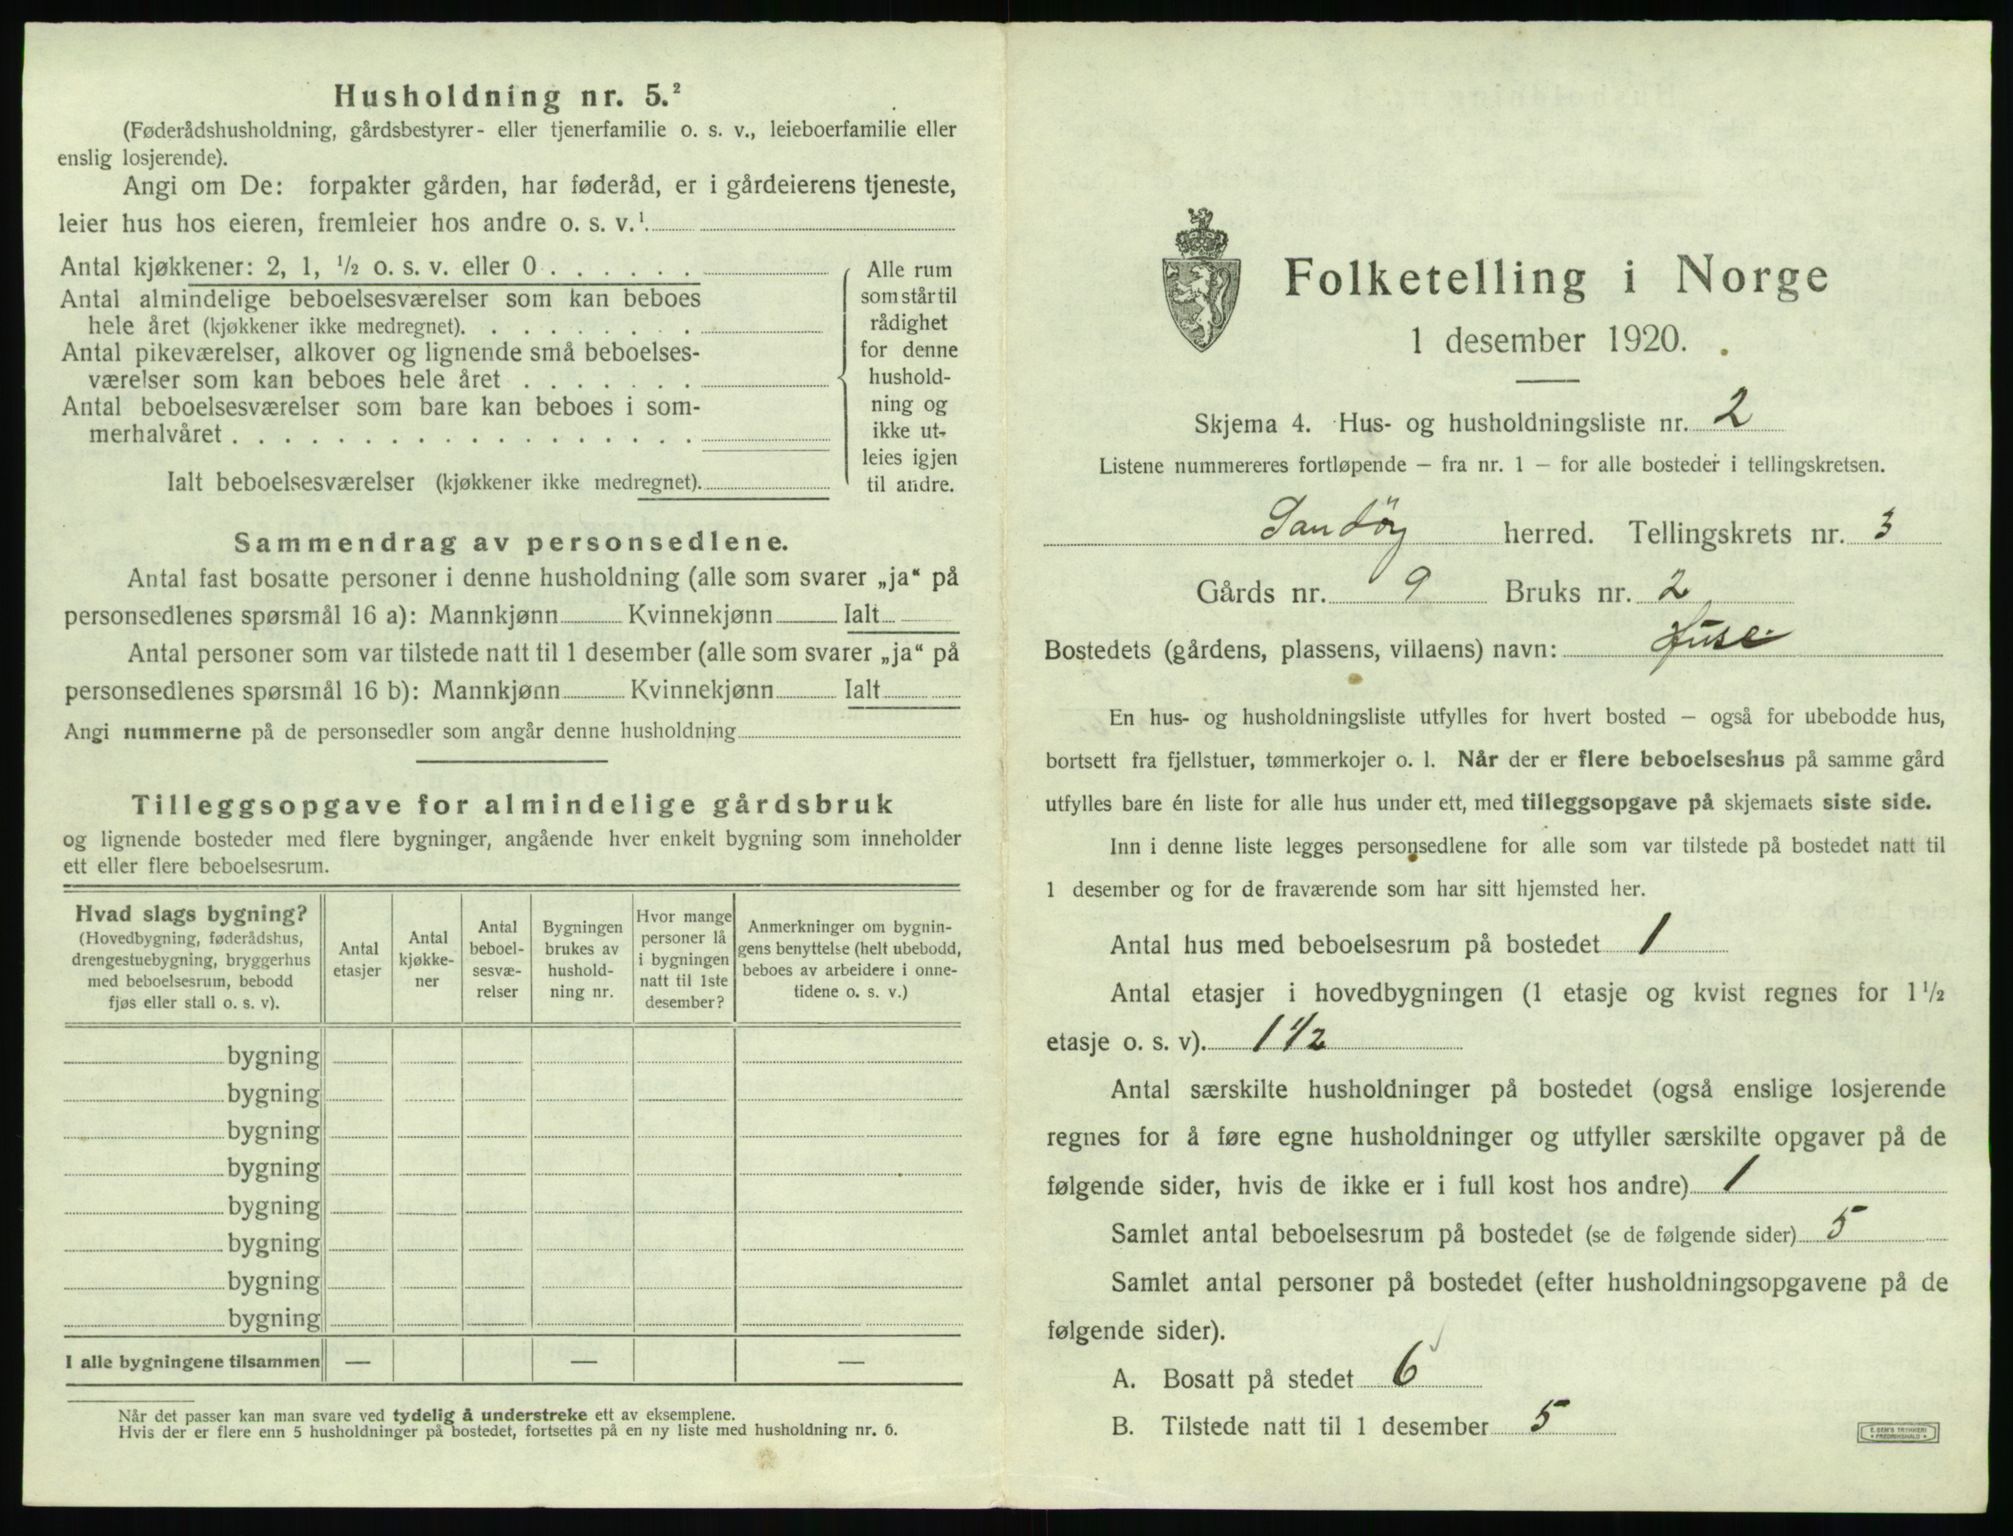 Husholdning nr. 5.²
(Føderådshusholdning, gårdsbestyrer- eller tjenerfamilie o. s. v., leieboerfamilie eller
enslig losjerende).
Angi om De: forpakter gården, har føderåd, er i gårdeierens tjeneste,
leier hus hos eieren, fremleier hos andre o. s. v.¹
Antal kjøkkener: 2, 1, ½ o. s. v. eller 0
Antal almindelige beboelsesværelser som kan beboes
hele året (kjøkkener ikke medregnet).
Antal pikeværelser, alkover og lignende små beboelses-
værelser som kan beboes hele året
Antal beboelsesværelser som bare kan beboes i som-
merhalvåret
Ialt beboelsesværelser (kjøkkener ikke medregnet).
Alle rum
som står til
rådighet
for denne
hushold-
ning og
ikke ut-
leies igjen
til andre.
Sammendrag av personsedlene.
Antal fast bosatte personer i denne husholdning (alle som svarer „ja“ på
personsedlenes spørsmål 16 a): Mannkjønn Kvinnekjønn Ialt
Antal personer som var tilstede natt til 1 desember (alle som svarer „ja“ på
personsedlenes spørsmål 16 b): Mannkjønn Kvinnekjønn Ialt
Angi nummerne på de personsedler som angår denne husholdning
Tilleggsopgave for almindelige gårdsbruk
og lignende bosteder med flere bygninger, angående hver enkelt bygning som inneholder
ett eller flere beboelsesrum.
Hvad slags bygning?
(Hovedbygning, føderådshus,
drengestuebygning, bryggerhus
med beboelsesrum, bebodd
fjøs eller stall o. s. v).
Antal
etasjer
Antal
kjøkke-
ner
Antal
beboel-
sesvæ-
relser
Bygningen
brukes av
hushold-
ning nr.
Hvor mange
personer lå
i bygningen
natt til 1ste
desember?
Anmerkninger om bygnin-
gens benyttelse (helt ubebodd,
beboes av arbeidere i onne-
tidene o. s. v.)
bygning
bygning
bygning
bygning
bygning
bygning
bygning
bygning
I alle bygningene tilsammen — — —
Når det passer kan man svare ved tydelig å understreke ett av eksemplene.
Hvis der er flere enn 5 husholdninger på bostedet, fortsettes på en ny liste med husholdning nr. 6.
Folketelling i Norge
1 desember 1920.
Skjema 4. Hus- og husholdningsliste nr. 2
Listene nummereres fortløpende – fra nr. 1 – for alle bosteder i tellingskretsen.
Sandöy herred. Tellingskrets nr. 3
Gårds nr. 9 Bruks nr. 2
Bostedets (gårdens, plassens, villaens) navn: Huse
En hus- og husholdningsliste utfylles for hvert bosted – også for ubebodde hus,
bortsett fra fjellstuer, tømmerkojer o. l. Når der er flere beboelseshus på samme gård
utfylles bare én liste for alle hus under ett, med tilleggsopgave på skjemaets siste side.
Inn i denne liste legges personsedlene for alle som var tilstede på bostedet natt til
1 desember og for de fraværende som har sitt hjemsted her.
Antal hus med beboelsesrum på bostedet 1
Antal etasjer i hovedbygningen (1 etasje og kvist regnes for 1½
etasje o. s. v). 1 1/2
Antal særskilte husholdninger på bostedet (også enslige losjerende
regnes for å føre egne husholdninger og utfyller særskilte opgaver på de
følgende sider, hvis de ikke er i full kost hos andre) 1
Samlet antal beboelsesrum på bostedet (se de følgende sider) 5
Samlet antal personer på bostedet (efter husholdningsopgavene på de
følgende sider).
A. Bosatt på stedet 6
B. Tilstede natt til 1 desember 5
E. SEM'S TRYKKERI
FREDRIKSHALD